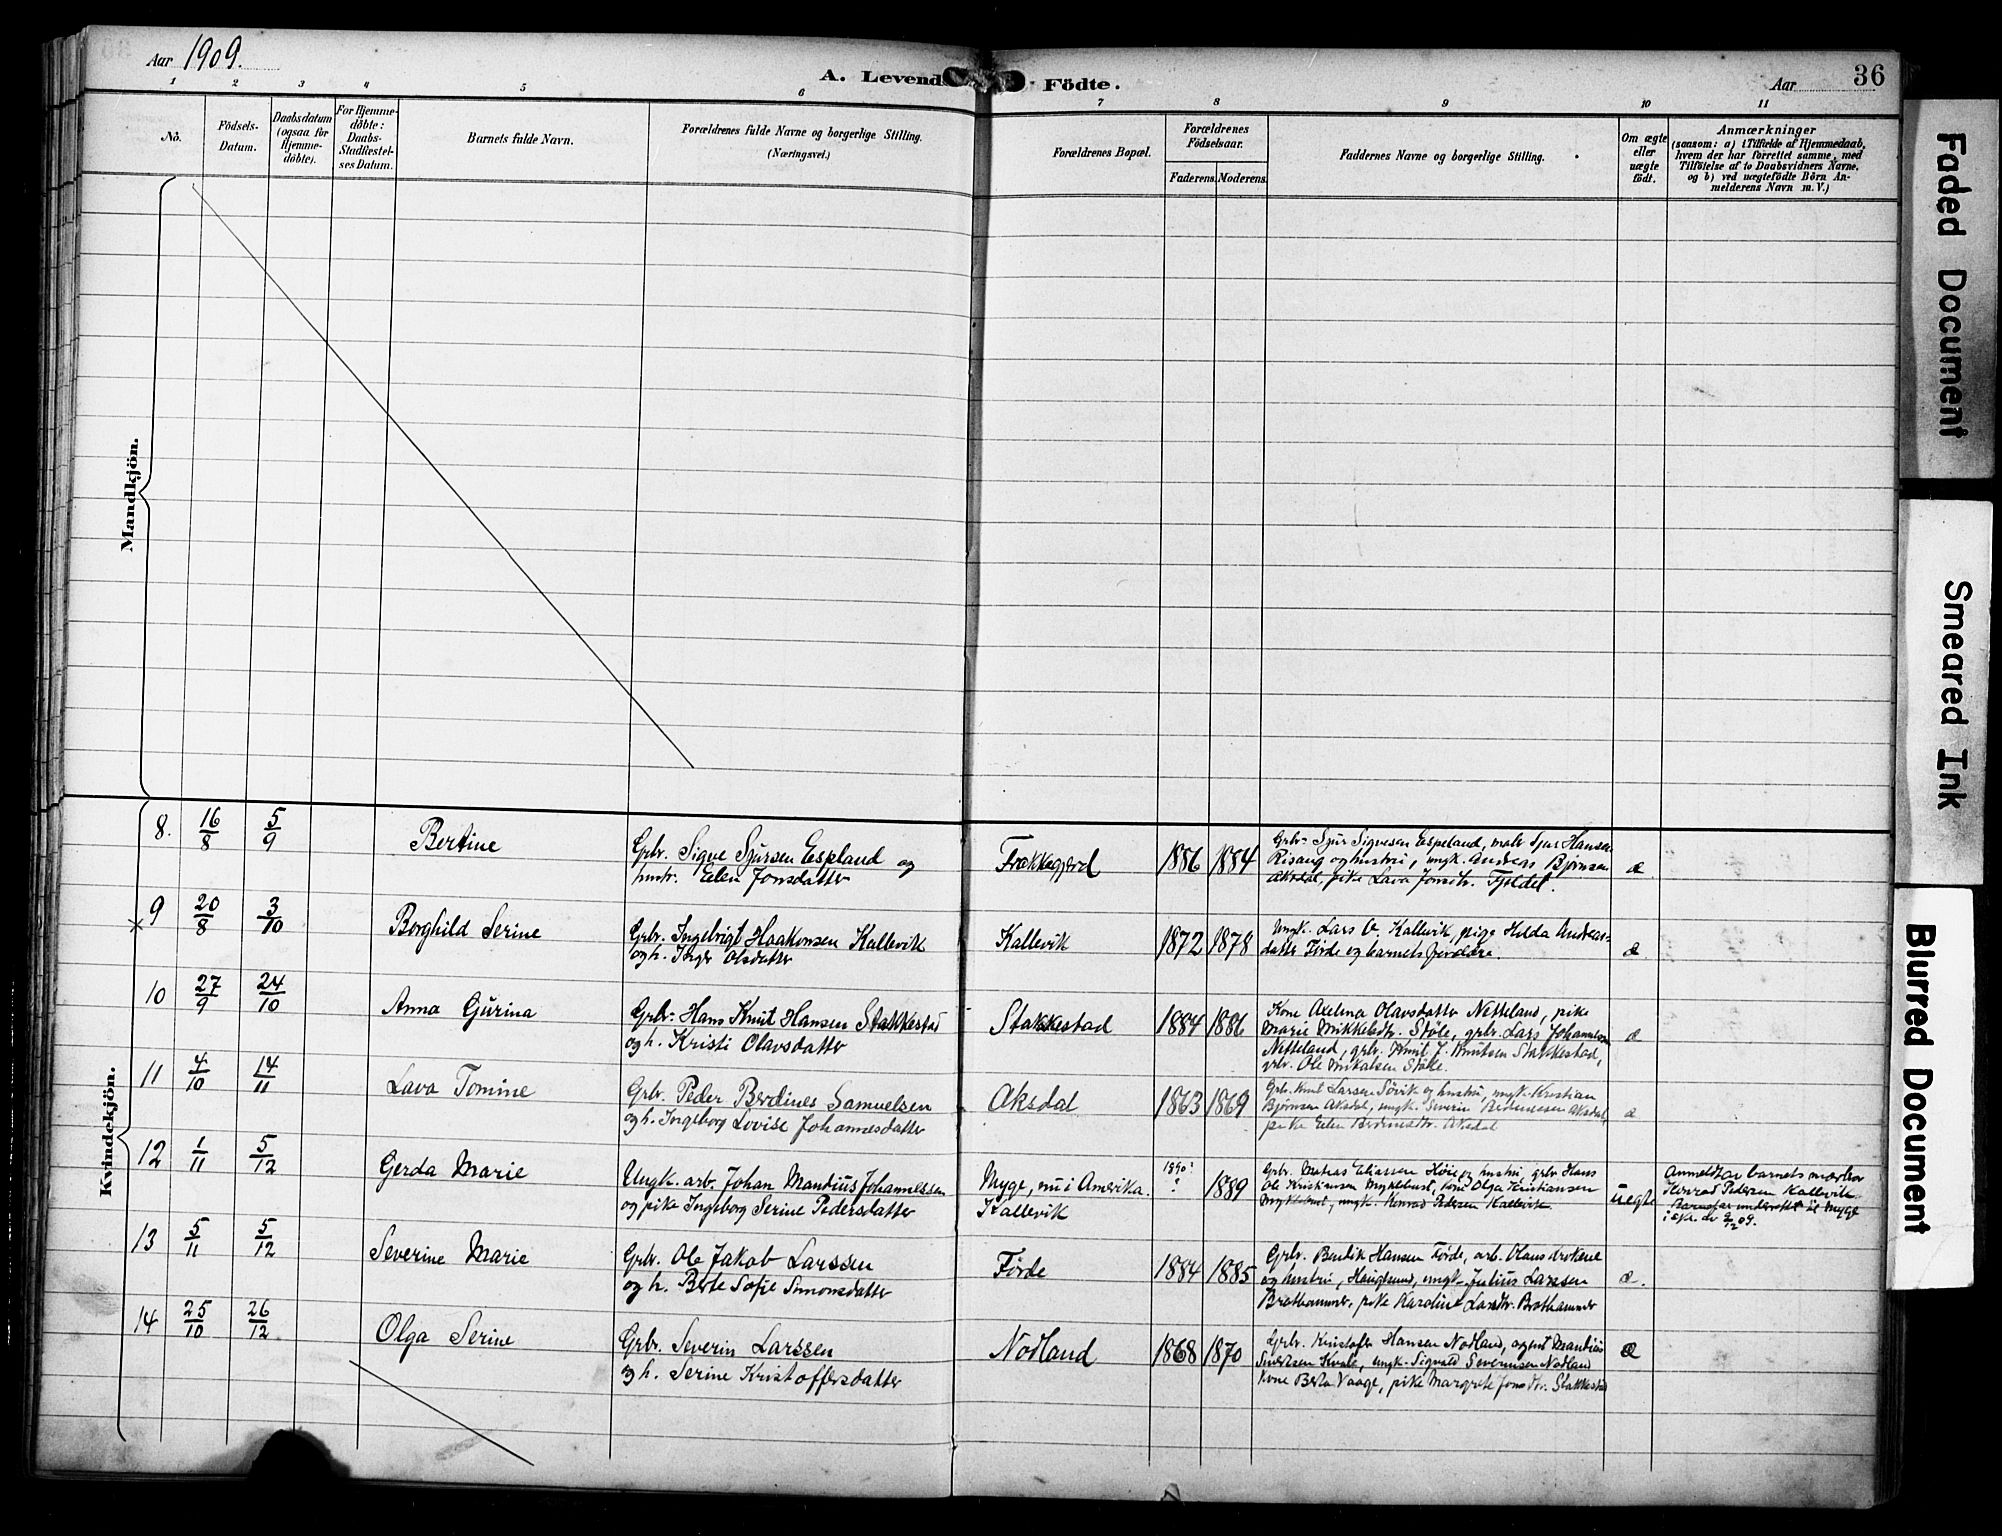 Aar 1909.
A. Levende Födte.
Aar
36
1 2 3 4 5 6 7 8 9 10 11
No.
Födsels-Datum.
Daabsdatum (ogsaa for Hjemme-döbte).
For Hjemme-döbte: Daabs-Stadfæstel-ses Datum.
Barnets fulde Navn.
Forældrenes fulde Navne og borgerlige Stilling.
(Næringsvei.)
Forældrenes Bopæl.
Forældrenes Födselsaar.
Faderens. Moderens.
Faddernes Navne og borgerlige Stilling.
Om ægte eller uægte födt.
Anmærkninger
(saasom: a) i Tilfælde af Hjemmedaab, hvem der har forrettet samme, med Tilföielse af to Daabsvidners Navne, og b) ved uægtefödte Börn An-melderens Navn m. V.)
Mandkjön.
Kvindekjön.
8. 16/8 5/9 Bertine
Grbr. Sigve Sjursen Espeland og
hustr. Elen Jonsdatter
Frakkagjerd 1886 1884
Grbr. Sjur Sigvesen Espeland, maler Sjur Hansen
Risang og hustru, ungk. Andreas Bjørnsen
Aksdal, pike Lava Jonsdtr. Fjeldet.
æ
× 9 20/8 3/10 Borghild Serine
Grbr. Ingebrigt Haakonsen Kallevik
og h. Inger Olsdatter
Kallevik 1872 1878
Ungk. Lars O. Kallevik, pige Hilda Andreas-
datter Førde og barnets forældre.
æ
10 27/9 24/10 Anna Gjurina
Grbr. Hans Knut Hansen Stakkestad
og h. Kristi Olavsdatter
Stakkestad 1884 1886
Kone Axelina Olavsdatter Netteland, pike
Marie Mikkelsdtr. Støle, grbr. Lars Johannesen
Netteland, grbr. Knut J. Knutsen Stakkestad,
grbr. Ole Mikalsen Støle.
æ
11 4/10 14/11 Lava Tomine
Grbr. Peder Berdines Samuelsen
og h. Ingeborg Lovise Johannesdatter
Aksdal 1863 1869
Grbr. Knut Larsen Sørvik og hustru, ungk. Kristian
Bjørnsen Aksdal, ungk. Severin Berdinesen Aksdal,
pike Elen Berdinesdtr. Aksdal
æ
12 1/11 5/12 Gerda Marie
Ungk. arb. Johan Mandius Johannessen
og pike Ingeborg Serine Pedersdatter
Myge, nu i Amerika.
Kallevik
1890?
? 1889
Grbr. Matias Eliassen Høie og hustru, grbr. Hans
Ole Kristiansen Myklebust, kone Olga Kristiansen
Myklebust, ungk. Konrad Pedersen Kallevik.
uegte
Anmeldt av barnets morbror
Konrad Pedersen Kallevik.
Barnefar underrettet til Myge
13 5/11 5/12 Severine Marie
Grbr. Ole Jakob Larssen
og h. Berte Sofie Simonsdatter
Førde 1884 1885
Grbr. Bendik Hansen Førde, arb. Olaus
og hustru, Haugesund, ungk. Julius Larssen
Brathammer, pike Karoline Larsdtr. Brathammer
æ.
14 25/10 26/12 Olga Serine
Grbr. Severin Larssen
og h. Serine Kristoffersdatter
Nodland 1868 1870
Grbr. Kristofer Hansen Nodland, agent Mandius
Sivertsen Kvale, ungk. Sigvald Severinsen Nodland
kone Berta Vaage, pike Margrete Jonsdtr. Stakkestad
æ
Faded Document
Smeared Ink
Blurred Document